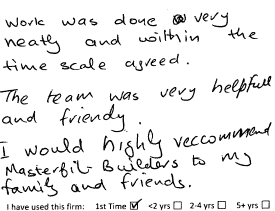 work was done very
neatly and within the
time scale agreed.
The team was very helpfull
and friendy.
I would highly reccommend
Masterfil- Builders to my
family and friends.
I have used this firm: 1st Time ☑ <2 yrs ☐ 2-4 yrs ☐ 5+ yrs ☐